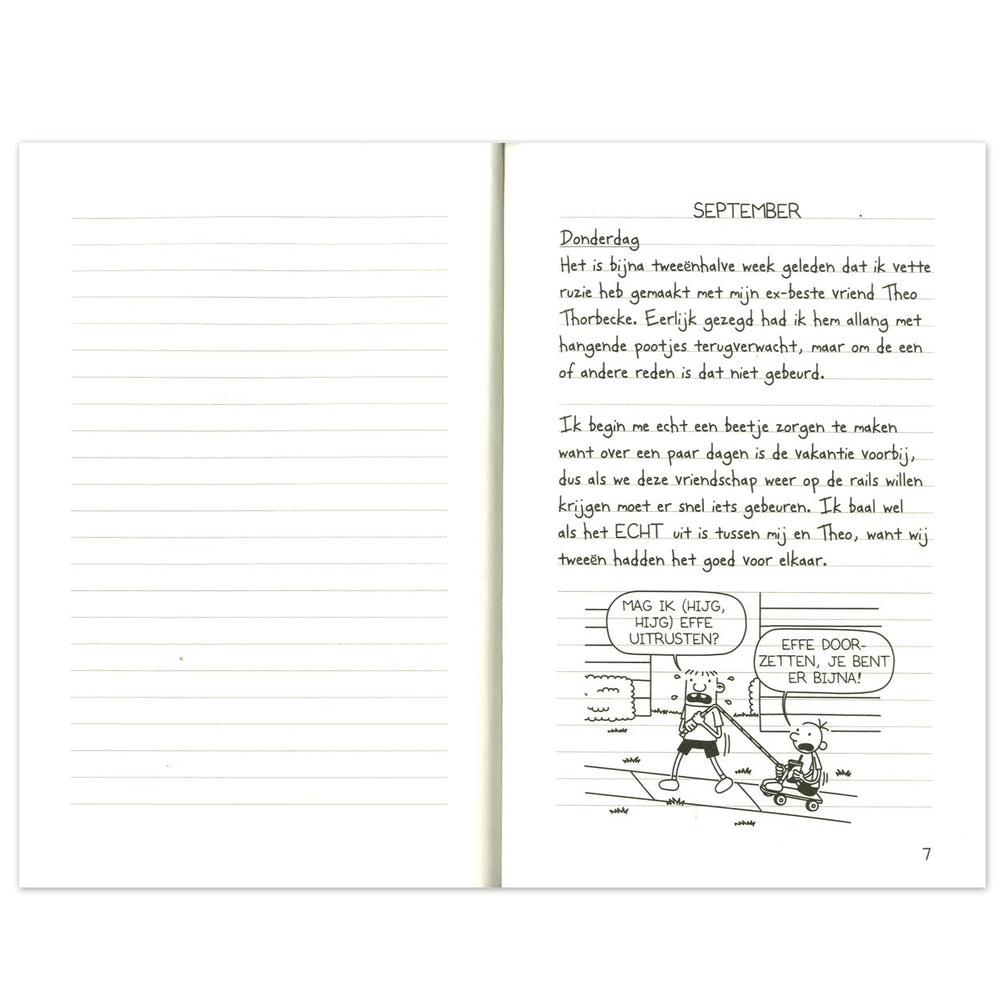 SEPTEMBER
Donderdag
Het is bijna tweeënhalve week geleden dat ik vette
ruzie heb gemaakt met mijn ex-beste vriend Theo
Thorbecke. Eerlijk gezegd had ik hem allang met
hangende pootjes terugverwacht, maar om de een
of andere reden is dat niet gebeurd.
Ik begin me echt een beetje zorgen te maken
want over een paar dagen is de vakantie voorbij,
dus als we deze vriendschap weer op de rails willen
krijgen moet er snel iets gebeuren. Ik baal wel
als het ECHT uit is tussen mij en Theo, want wij
tweeën hadden het goed voor elkaar.
MAG IK (HIJG,
HIJG) EFFE
UITRUSTEN?
EFFE DOOR-
ZETTEN, JE BENT
ER BIJNA!
7